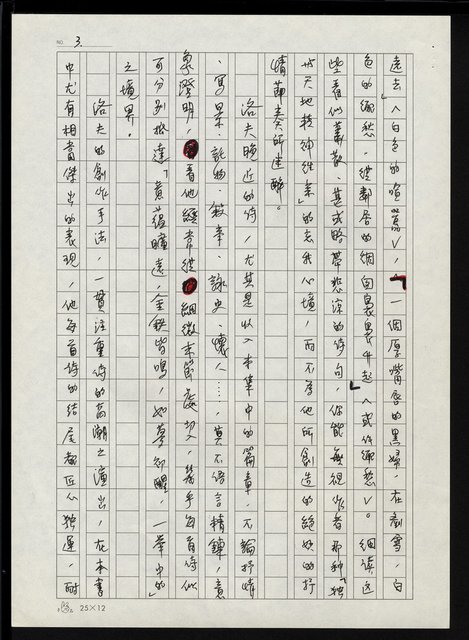 NO. 3.
遠去」〈白色的喧囂〉,「一個厚嘴唇的黑婦,在剷雪,白
色的鄉愁,從鄰居的煙囪裊裊升起」〈或作鄉愁〉。細讀這
些看似蕭散、甚或略帶悲涼的詩句,你能無視作者那種「獨
與天地精神往來」的去我心境,而不為他所創造的絕妙的抒
情節奏所迷醉。
洛夫晚近的詩,尤其是收入本集中的篇章,不論抒情
、寫景、託物、敘事、詠史、懷人……,莫不語言精鍊,意
象澄明,看他經常從細微末節處切入,幾乎每首詩似
可分別抵達「意蘊曠遠,金鐵皆鳴,如夢初醒,一葦中的」
之境界。
洛夫的創作手法,一貫注重詩的高潮之演出,在本書
中尤有相當傑出的表現,他每首詩的結尾都匠心獨運,耐
25×12